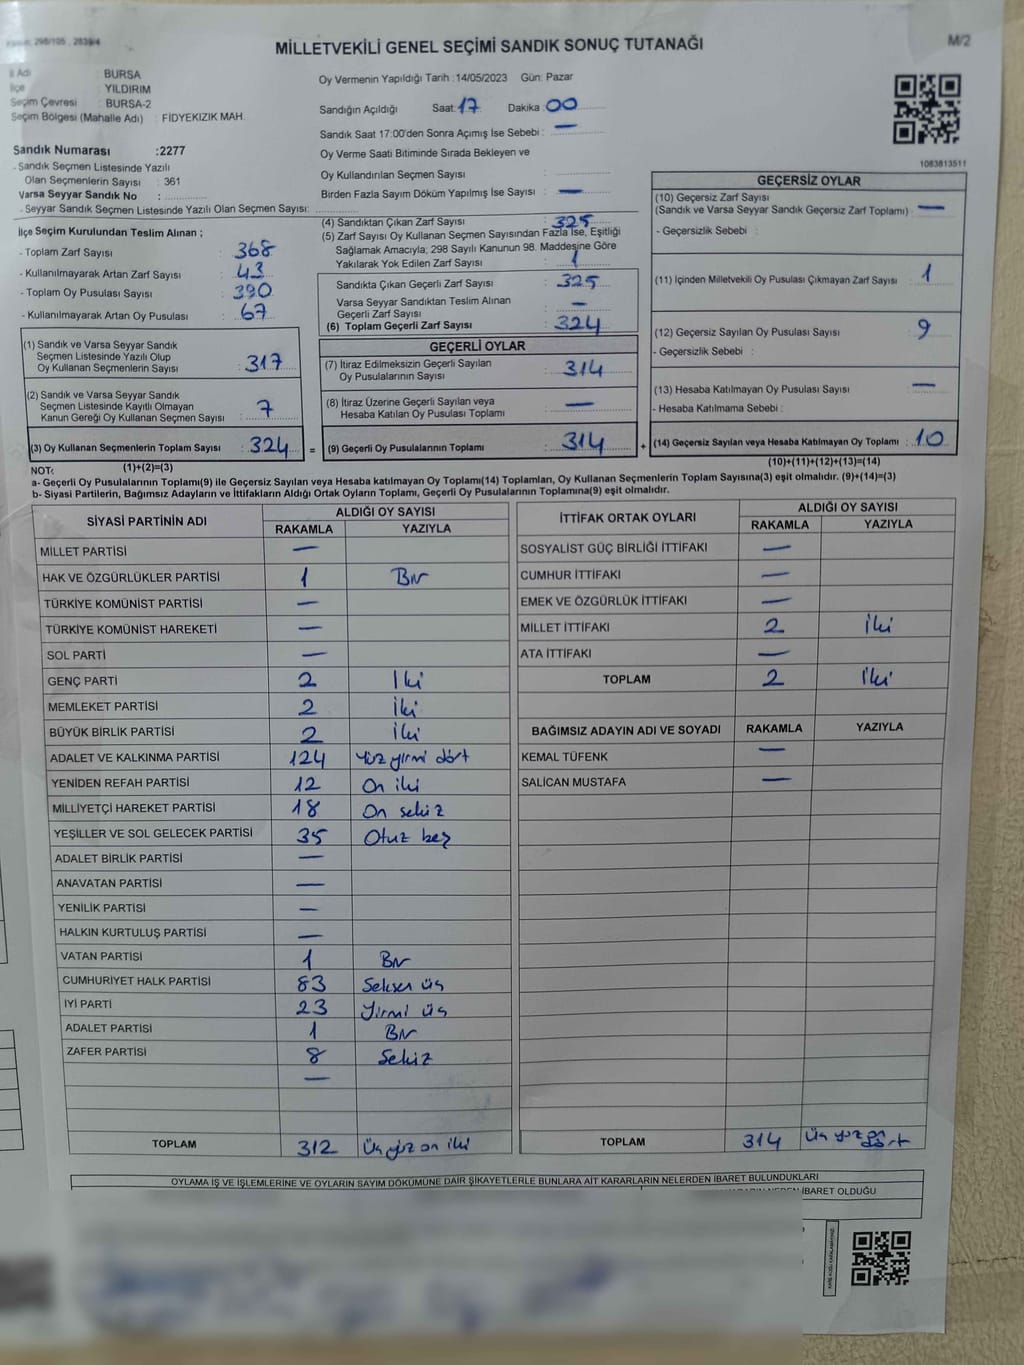 MİLLETVEKİLİ GENEL SEÇİMİ SANDIK SONUÇ TUTANAĞI
M/2
İl Adı : BURSA
İlçe : YILDIRIM
Seçim Çevresi : BURSA-2
Seçim Bölgesi (Mahalle Adı) : FİDYEKIZIK MAH.
Sandık Numarası :2277
- Sandık Seçmen Listesinde Yazılı
Olan Seçmenlerin Sayısı : 361
Varsa Seyyar Sandık No :
- Seyyar Sandık Seçmen Listesinde Yazılı Olan Seçmen Sayısı:
İlçe Seçim Kurulundan Teslim Alınan ;
- Toplam Zarf Sayısı : 368
- Kullanılmayarak Artan Zarf Sayısı : 43
- Toplam Oy Pusulası Sayısı : 390
- Kullanılmayarak Artan Oy Pusulası : 67
(1) Sandık ve Varsa Seyyar Sandık
Seçmen Listesinde Yazılı Olup
Oy Kullanan Seçmenlerin Sayısı : 317
(2) Sandık ve Varsa Seyyar Sandık
Seçmen Listesinde Kayıtlı Olmayan
Kanun Gereği Oy Kullanan Seçmen Sayısı : 7
(3) Oy Kullanan Seçmenlerin Toplam Sayısı : 324 =
(1)+(2)=(3)
Oy Vermenin Yapıldığı Tarih :14/05/2023 Gün: Pazar
Sandığın Açıldığı Saat: 17 Dakika :00
Sandık Saat 17:00'den Sonra Açımış İse Sebebi : —
Oy Verme Saati Bitiminde Sırada Bekleyen ve
Oy Kullandırılan Seçmen Sayısı :
Birden Fazla Sayım Döküm Yapılmış İse Sayısı : —
(4) Sandıktan Çıkan Zarf Sayısı : 325
(5) Zarf Sayısı Oy Kullanan Seçmen Sayısından Fazla İse, Eşitliği
Sağlamak Amacıyla; 298 Sayılı Kanunun 98. Maddesine Göre
Yakılarak Yok Edilen Zarf Sayısı : 1
Sandıkta Çıkan Geçerli Zarf Sayısı : 325
Varsa Seyyar Sandıktan Teslim Alınan
Geçerli Zarf Sayısı : —
(6) Toplam Geçerli Zarf Sayısı : 324
GEÇERLİ OYLAR
(7) İtiraz Edilmeksizin Geçerli Sayılan
Oy Pusulalarının Sayısı : 314
(8) İtiraz Üzerine Geçerli Sayılan veya
Hesaba Katılan Oy Pusulası Toplamı : —
(9) Geçerli Oy Pusulalarının Toplamı : 314 +
1083813511
GEÇERSİZ OYLAR
(10) Geçersiz Zarf Sayısı
(Sandık ve Varsa Seyyar Sandık Geçersiz Zarf Toplamı) : —
- Geçersizlik Sebebi :
(11) İçinden Milletvekili Oy Pusulası Çıkmayan Zarf Sayısı : 1
(12) Geçersiz Sayılan Oy Pusulası Sayısı : 9
- Geçersizlik Sebebi :
(13) Hesaba Katılmayan Oy Pusulası Sayısı : —
- Hesaba Katılmama Sebebi :
(14) Geçersiz Sayılan veya Hesaba Katılmayan Oy Toplamı : 10
(10)+(11)+(12)+(13)=(14)
NOT:
a- Geçerli Oy Pusulalarının Toplamı(9) ile Geçersiz Sayılan veya Hesaba katılmayan Oy Toplamı(14) Toplamları, Oy Kullanan Seçmenlerin Toplam Sayısına(3) eşit olmalıdır. (9)+(14)=(3)
b- Siyasi Partilerin, Bağımsız Adayların ve İttifakların Aldığı Ortak Oyların Toplamı, Geçerli Oy Pusulalarının Toplamına(9) eşit olmalıdır.
SİYASİ PARTİNİN ADI ALDIĞI OY SAYISI
RAKAMLA YAZIYLA
MİLLET PARTİSİ —
HAK VE ÖZGÜRLÜKLER PARTİSİ 1 Bir
TÜRKİYE KOMÜNİST PARTİSİ —
TÜRKİYE KOMÜNİST HAREKETİ —
SOL PARTİ —
GENÇ PARTİ 2 İki
MEMLEKET PARTİSİ 2 İki
BÜYÜK BİRLİK PARTİSİ 2 İki
ADALET VE KALKINMA PARTİSİ 124 Yüz yirmi dört
YENİDEN REFAH PARTİSİ 12 On iki
MİLLİYETÇİ HAREKET PARTİSİ 18 On sekiz
YEŞİLLER VE SOL GELECEK PARTİSİ 35 Otuz beş
ADALET BİRLİK PARTİSİ —
ANAVATAN PARTİSİ —
YENİLİK PARTİSİ —
HALKIN KURTULUŞ PARTİSİ —
VATAN PARTİSİ 1 Bir
CUMHURİYET HALK PARTİSİ 83 Seksen üç
İYİ PARTİ 23 Yirmi üç
ADALET PARTİSİ 1 Bir
ZAFER PARTİSİ 8 Sekiz
—
TOPLAM 312 Üç yüz on iki
İTTİFAK ORTAK OYLARI ALDIĞI OY SAYISI
RAKAMLA YAZIYLA
SOSYALİST GÜÇ BİRLİĞİ İTTİFAKI —
CUMHUR İTTİFAKI —
EMEK VE ÖZGÜRLÜK İTTİFAKI —
MİLLET İTTİFAKI 2 İki
ATA İTTİFAKI —
TOPLAM 2 İki
BAĞIMSIZ ADAYIN ADI VE SOYADI RAKAMLA YAZIYLA
KEMAL TÜFENK —
SALİCAN MUSTAFA —
TOPLAM 314 Üç yüz on dört
OYLAMA İŞ VE İŞLEMLERİNE VE OYLARIN SAYIM DÖKÜMÜNE DAİR ŞİKAYETLERLE BUNLARA AİT KARARLARIN NELERDEN İBARET BULUNDUKLARI
İBARET OLDUĞU